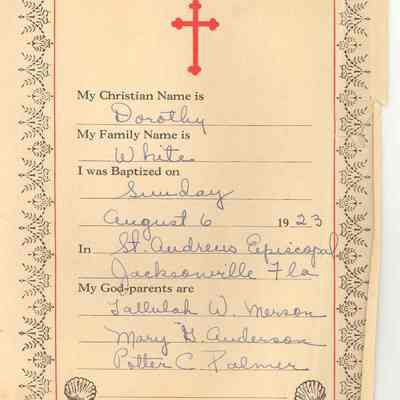 My Christian Name is
Dorothy
My Family Name is
White
I was Baptized on
Sunday
August 6 1923
In St. Andrews Episcopal
Jacksonville Fla
My God-parents are
Tallulah W. Merson
Mary H. Anderson
Potter C. Palmer